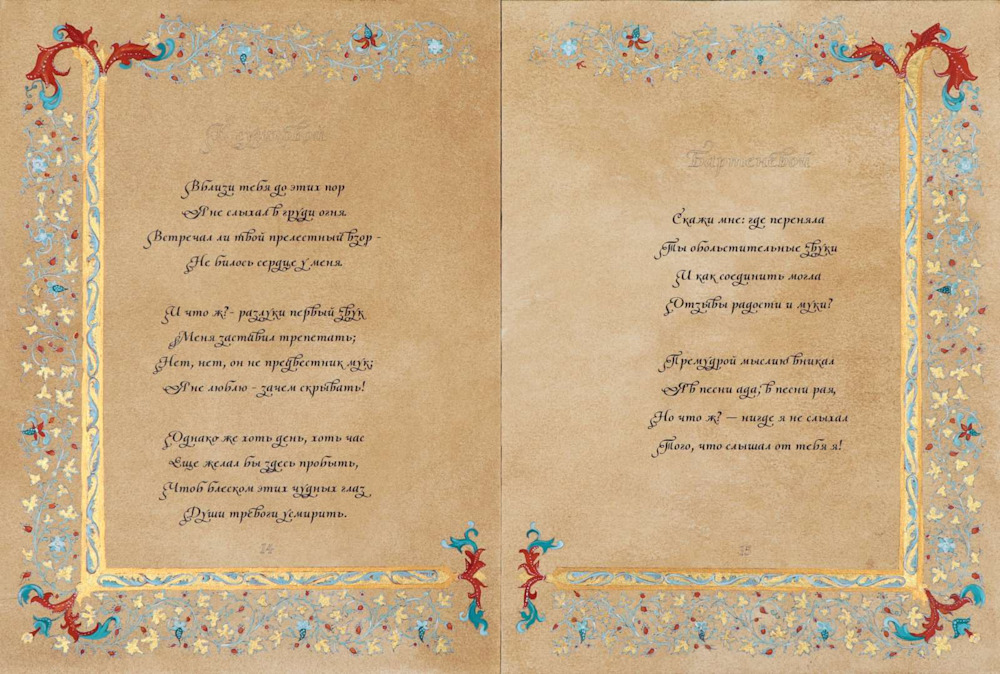 Вблизи тебя до этих пор
Я не слыхал в груди огня.
Встречал ли твой прелестный взор -
Не билось сердце у меня.
И что ж? - разлуки первый звук
Меня заставил трепетать;
Нет, нет, он не предвестник мук;
Я не люблю - зачем скрывать!
Однако же хоть день, хоть час
Еще желал бы здесь пробыть,
Чтоб блеском этих чудных глаз
Души тревоги усмирить.
14
Бартеневой
Скажи мне: где переняла
Ты обольстительные звуки
И как соединить могла
Отзывы радости и муки?
Премудрой мыслию вникал
Я в песни ада, в песни рая,
Но что ж? — нигде я не слыхал
Того, что слышал от тебя я!
15